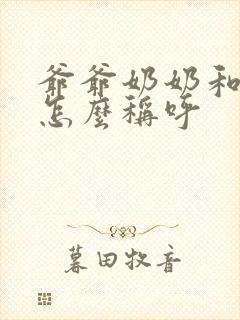 爺爺奶奶和
怎麼稱呼
暮田牧音